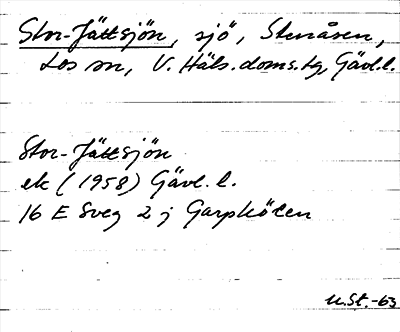 Stor-Jättsjön, sjö, Stenåsen,
Los sn, V. Häls. doms. tg, Gävl. l.
Stor-Jättsjön
ek (1958) Gävl. l.
16 E Sveg 2 j Garpkölen
U.St.-63